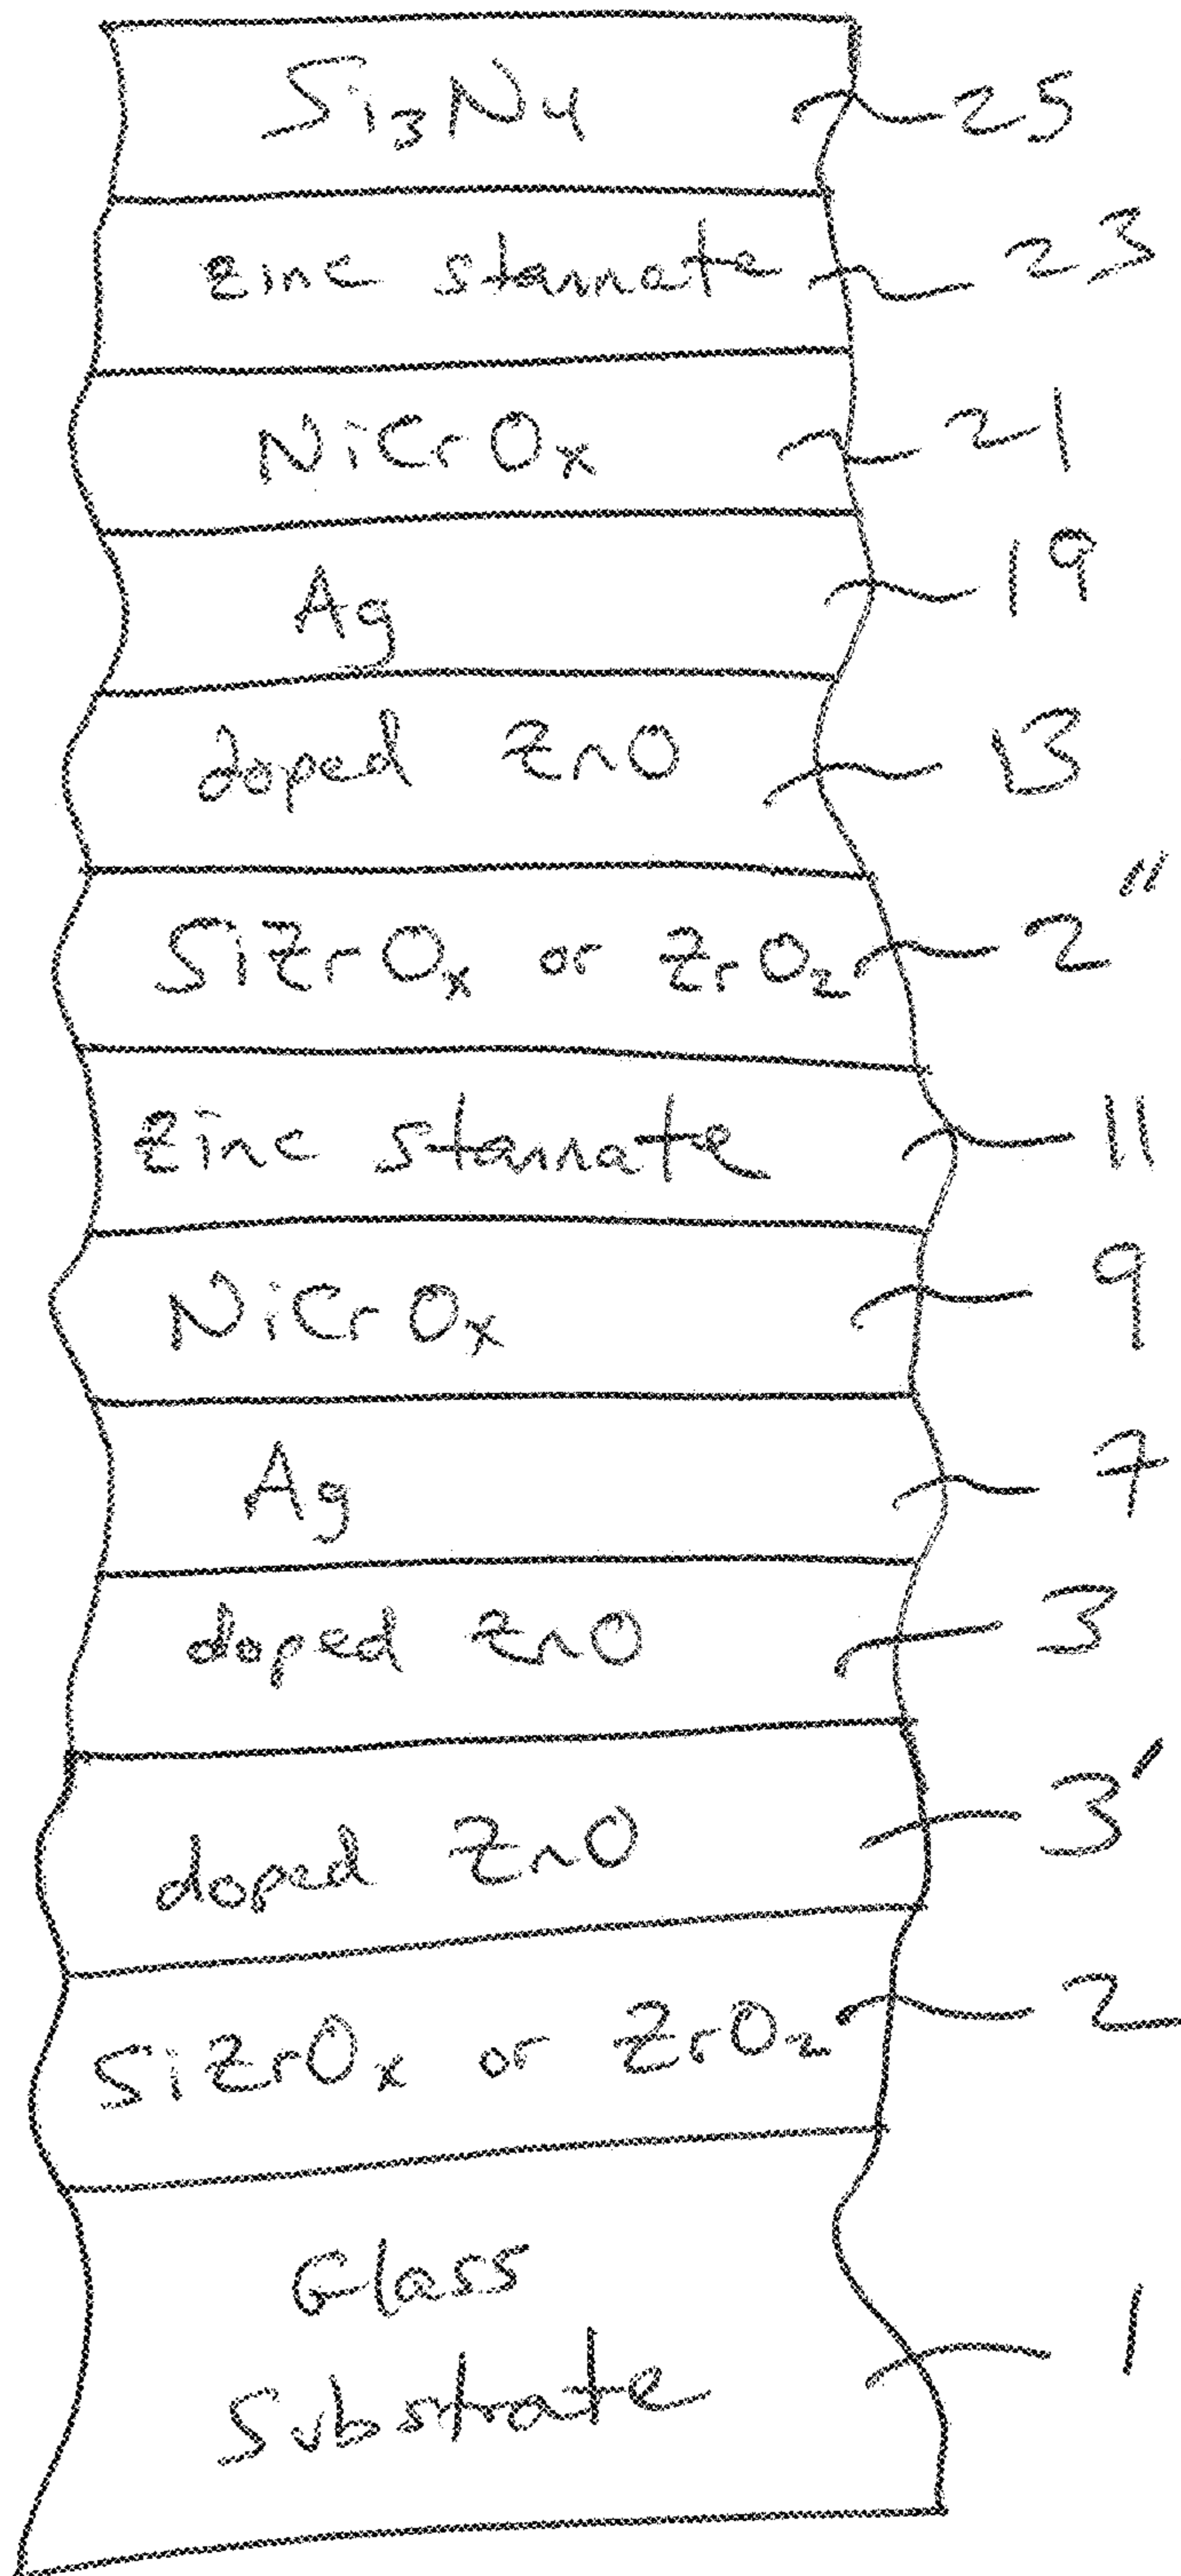 Si3N4 25
zinc stannate 23
NiCrOx 21
Ag 19
doped ZnO 13
SiZrOx or ZrO2 2"
zinc stannate 11
NiCrOx 9
Ag 7
doped ZnO 3
doped ZnO 3'
SiZrOx or ZrO2 2
Glass 1
Substrate